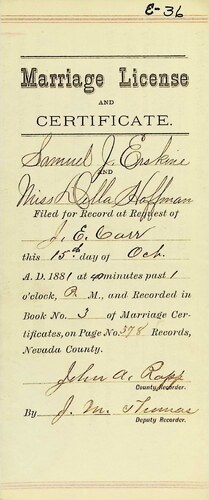 E-36
Marriage License
AND
CERTIFICATE.
Samuel J. Erskine
AND
Miss Della Hoffman
Filed for Record at Request of
J. E. Carr
this 15th day of Oct.
A. D. 1881 at 4 minutes past 1
o'clock, P. M., and Recorded in
Book No. 3 of Marriage Cer-
tificates, on Page No. 378 Records,
Nevada County.
John A. Rapp
County Recorder.
By J. M. Thomas
Deputy Recorder.